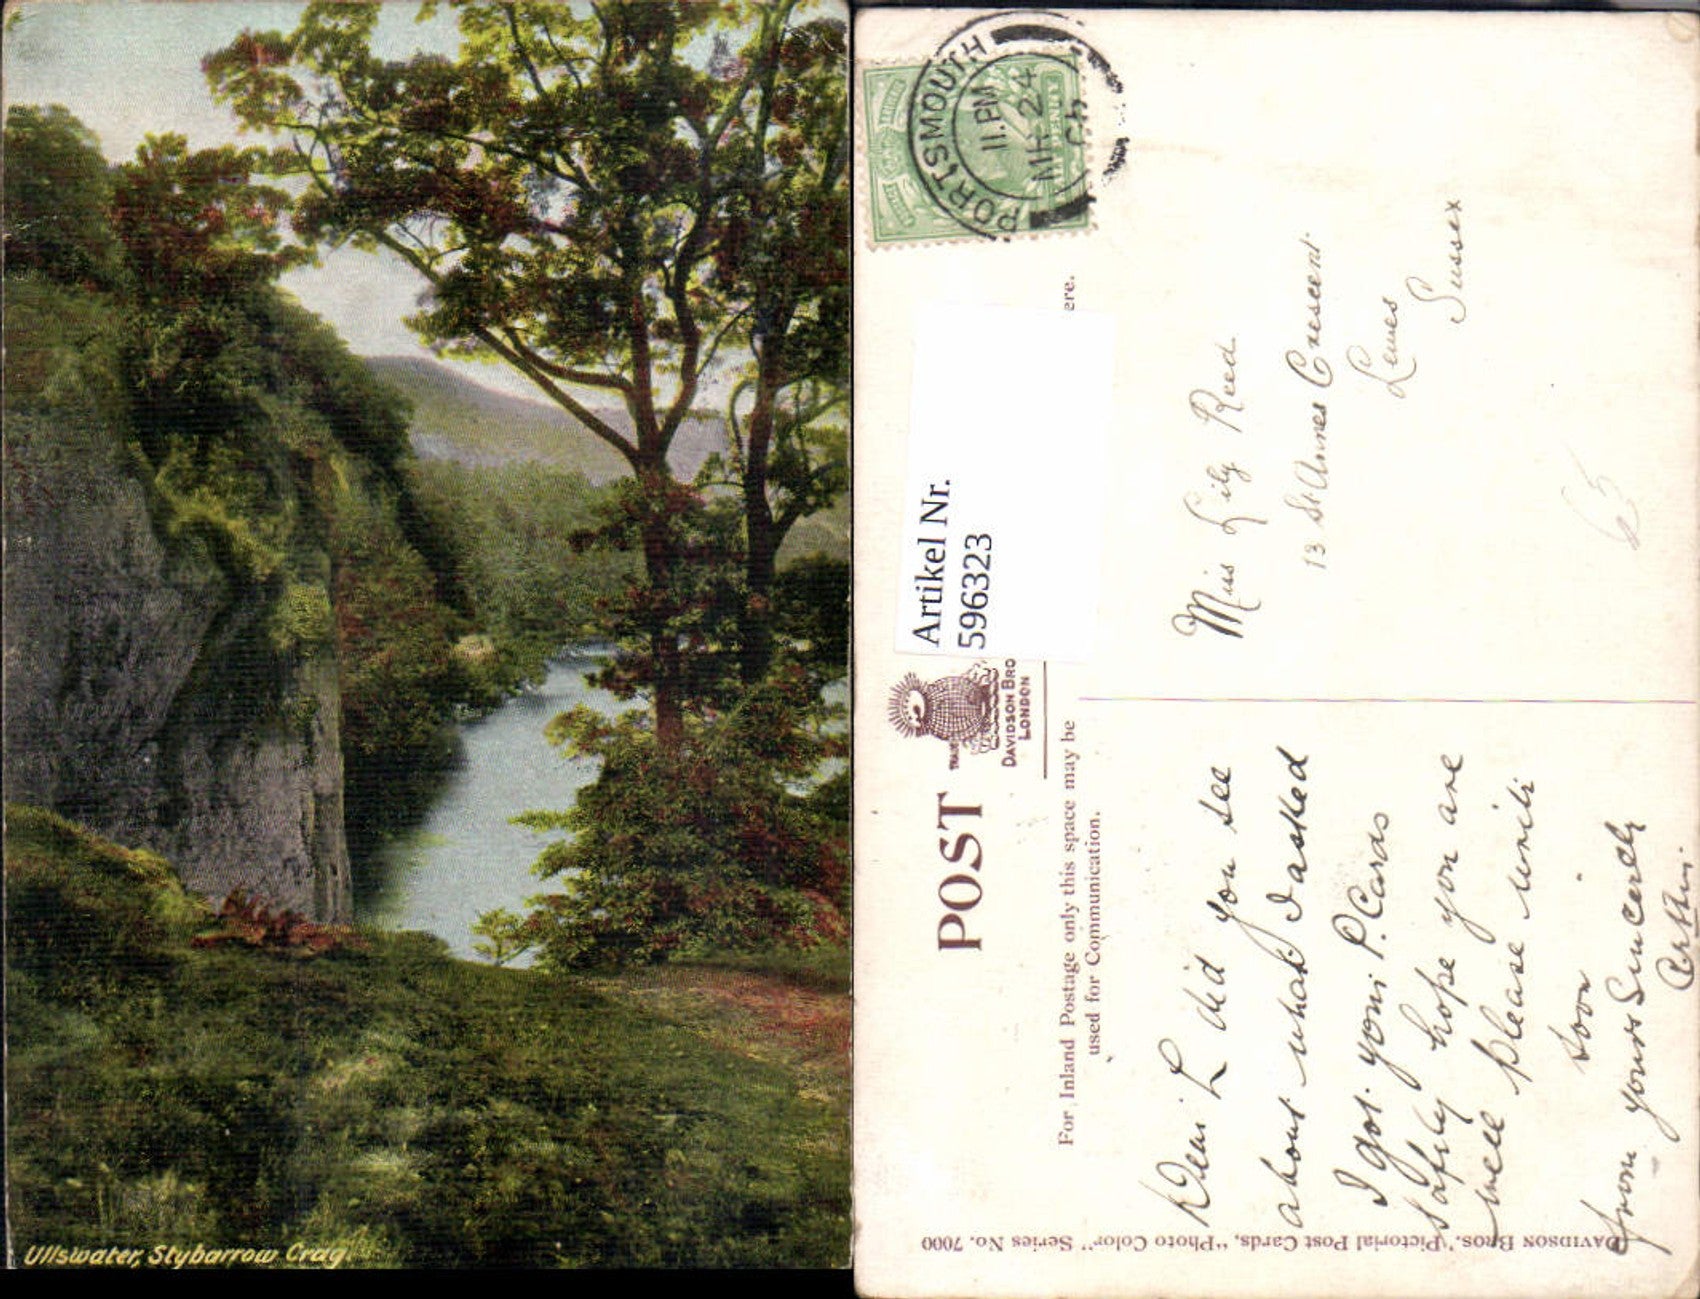 Ullswater, Stybarrow Crag.
PORTSMOUTH
11.PM
24
Artikel Nr.
596323
ere.
DAVIDSON BRO
LONDON
POST
For Inland Postage only this space may be
used for Communication.
Miss Lily Reed
13 St Annes Crescent
Lewes
Sussex
65
Dear L did you see
about what I asked
I got your P. Cards
safely hope you are
well please write
soon
from yours Sincerely
DAVIDSON BROS.' Pictorial Post Cards, "Photo Color" Series No. 7000